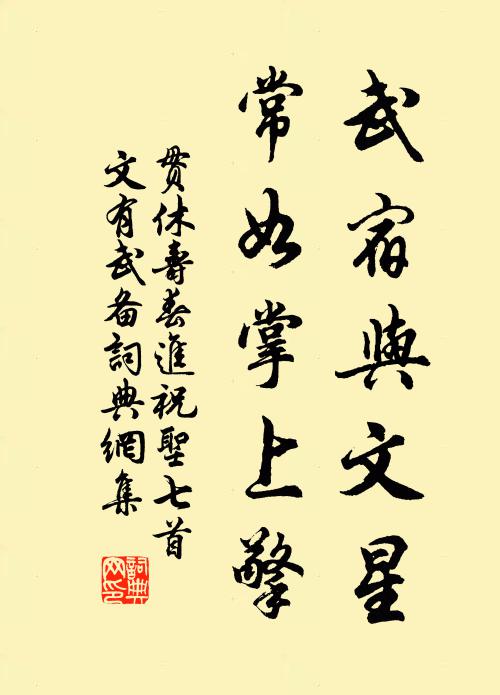 武宿與文星
常如掌上擎
貫休壽春進祝聖七首
文有武备詞典網集
詞典网印